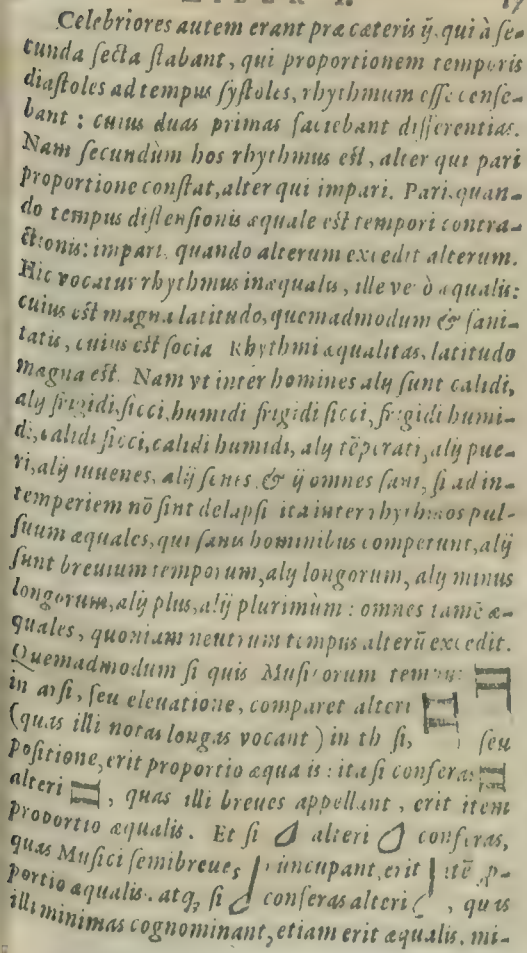 17
Celebriores autem erant præ cæteris ij, qui à se-
cunda secta stabant, qui proportionem temporis
diastoles ad tempus systoles, rhythmum esse cense-
bant : cuius duas primas faciebant differentias.
Nam secundùm hos rhythmus est, alter qui pari
proportione constat, alter qui impari. Pari, quan-
do tempus distensionis æquale est tempori contra-
ctionis: impari, quando alterum excedit alterum.
Hic vocatur rhythmus inæqualis, ille verò æqualis:
cuius est magna latitudo, quemadmodum & sani-
tatis, cuius est socia Rhythmi æqualitas, latitudo
magna est. Nam vt inter homines alij sunt calidi,
alij frigidi, sicci, humidi frigidi sicci, frigidi humi-
di, calidi sicci, calidi humidi, alij tẽperati, alij pue-
ri, alij iuuenes, alij senes, & ij omnes sani, si ad in-
temperiem nõ sint delapsi ita inter rhythmos pul-
suum æquales, qui sanis hominibus competunt, alij
sunt breuium temporum, alij longorum, alij minus
longorum, alij plus, alij plurimùm : omnes tamẽ æ-
quales, quoniam neutrum tempus alterũ excedit.
Quemadmodum si quis Musicorum
in arsi, seu eleuatione, comparet alteri
(quas illi notas longas vocant) in seu
positione, erit proportio æqualis : ita si conferas
alteri , quas illi breues appellant, erit item
proportio æqualis. Et si alteri conferas,
quas Musici semibreues nuncupant, erit itẽ p-
portio æqualis. atq; si conferas alteri , quas
illi minimas cognominant, etiam erit æqualis. mi-